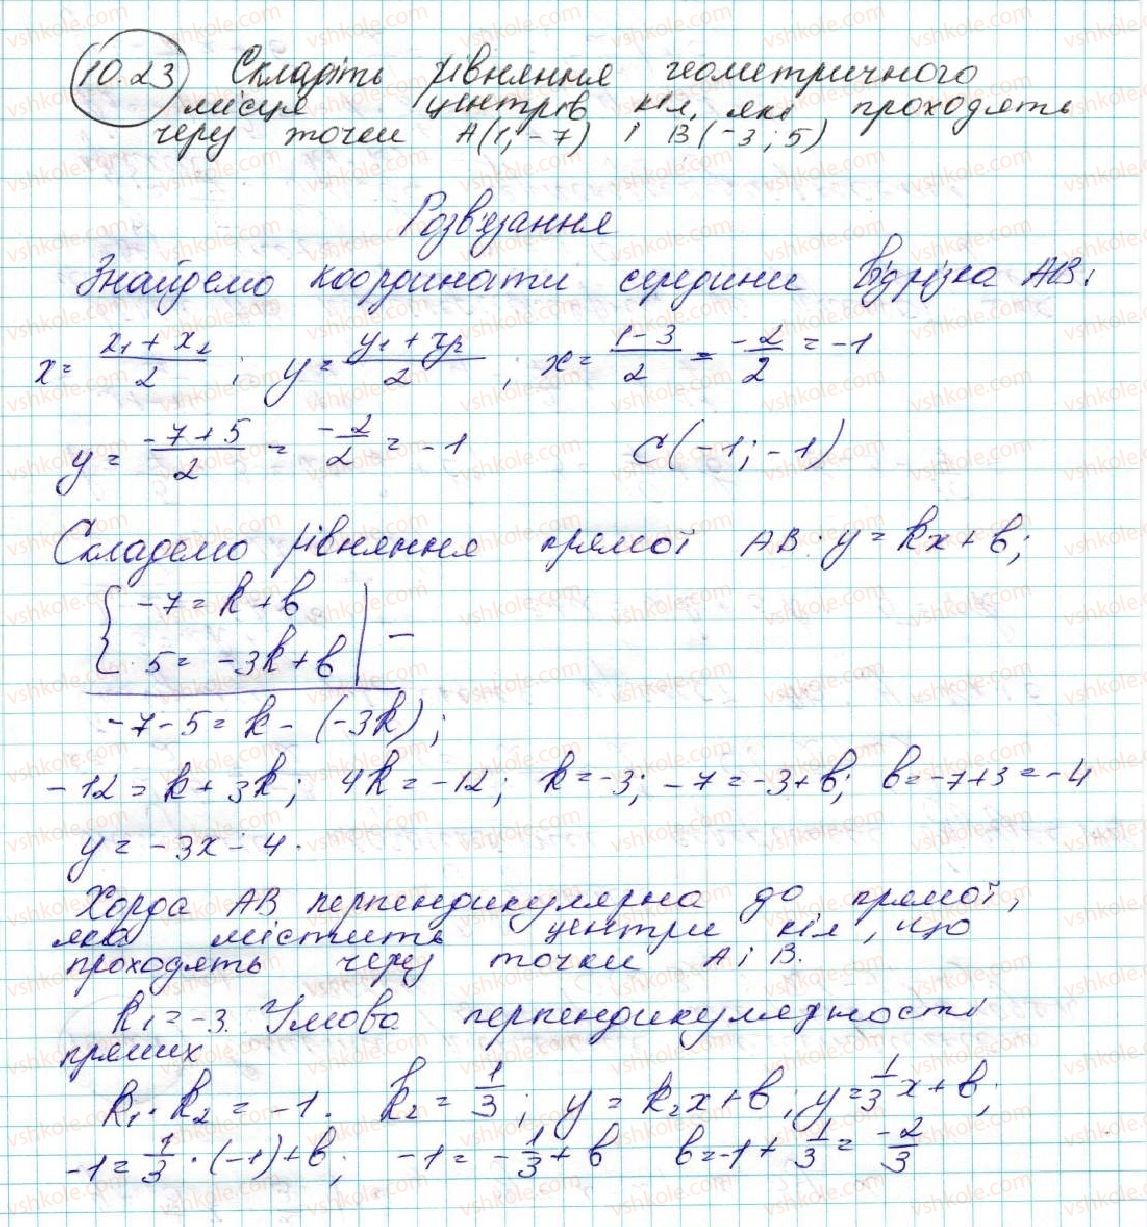 10.23 Складіть рівняння геометричного
місця центрів кіл, які проходять
через точки A(1; -7) і B(-3; 5)
Розв'язання
Знайдемо координати середини відрізка AB:
x = (x₁ + x₂)/2 ; y = (y₁ + y₂)/2 ; x = (1-3)/2 = -2/2 = -1
y = (-7+5)/2 = -2/2 = -1 C(-1; -1)
Складемо рівняння прямої AB: y = kx + b;
{ -7 = k + b
5 = -3k + b | -
-7-5 = k - (-3k);
-12 = k + 3k; 4k = -12; k = -3; -7 = -3 + b; b = -7+3 = -4
y = -3x - 4.
Хорда AB перпендикулярна до прямої,
яка містить центри кіл, що
проходять через точки A і B.
k₁ = -3. Умова перпендикулярності
прямих
k₁ · k₂ = -1. k₂ = 1/3 ; y = k₂x + b; y = 1/3 x + b;
-1 = 1/3 · (-1) + b; -1 = -1/3 + b b = -1 + 1/3 = -2/3